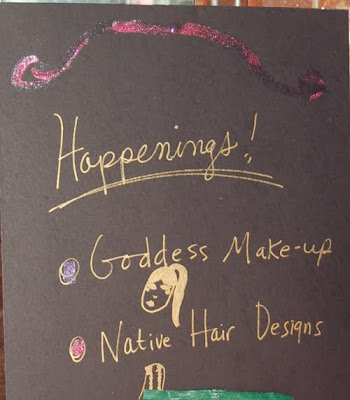 Happenings!
Goddess Make-up
Native Hair Designs